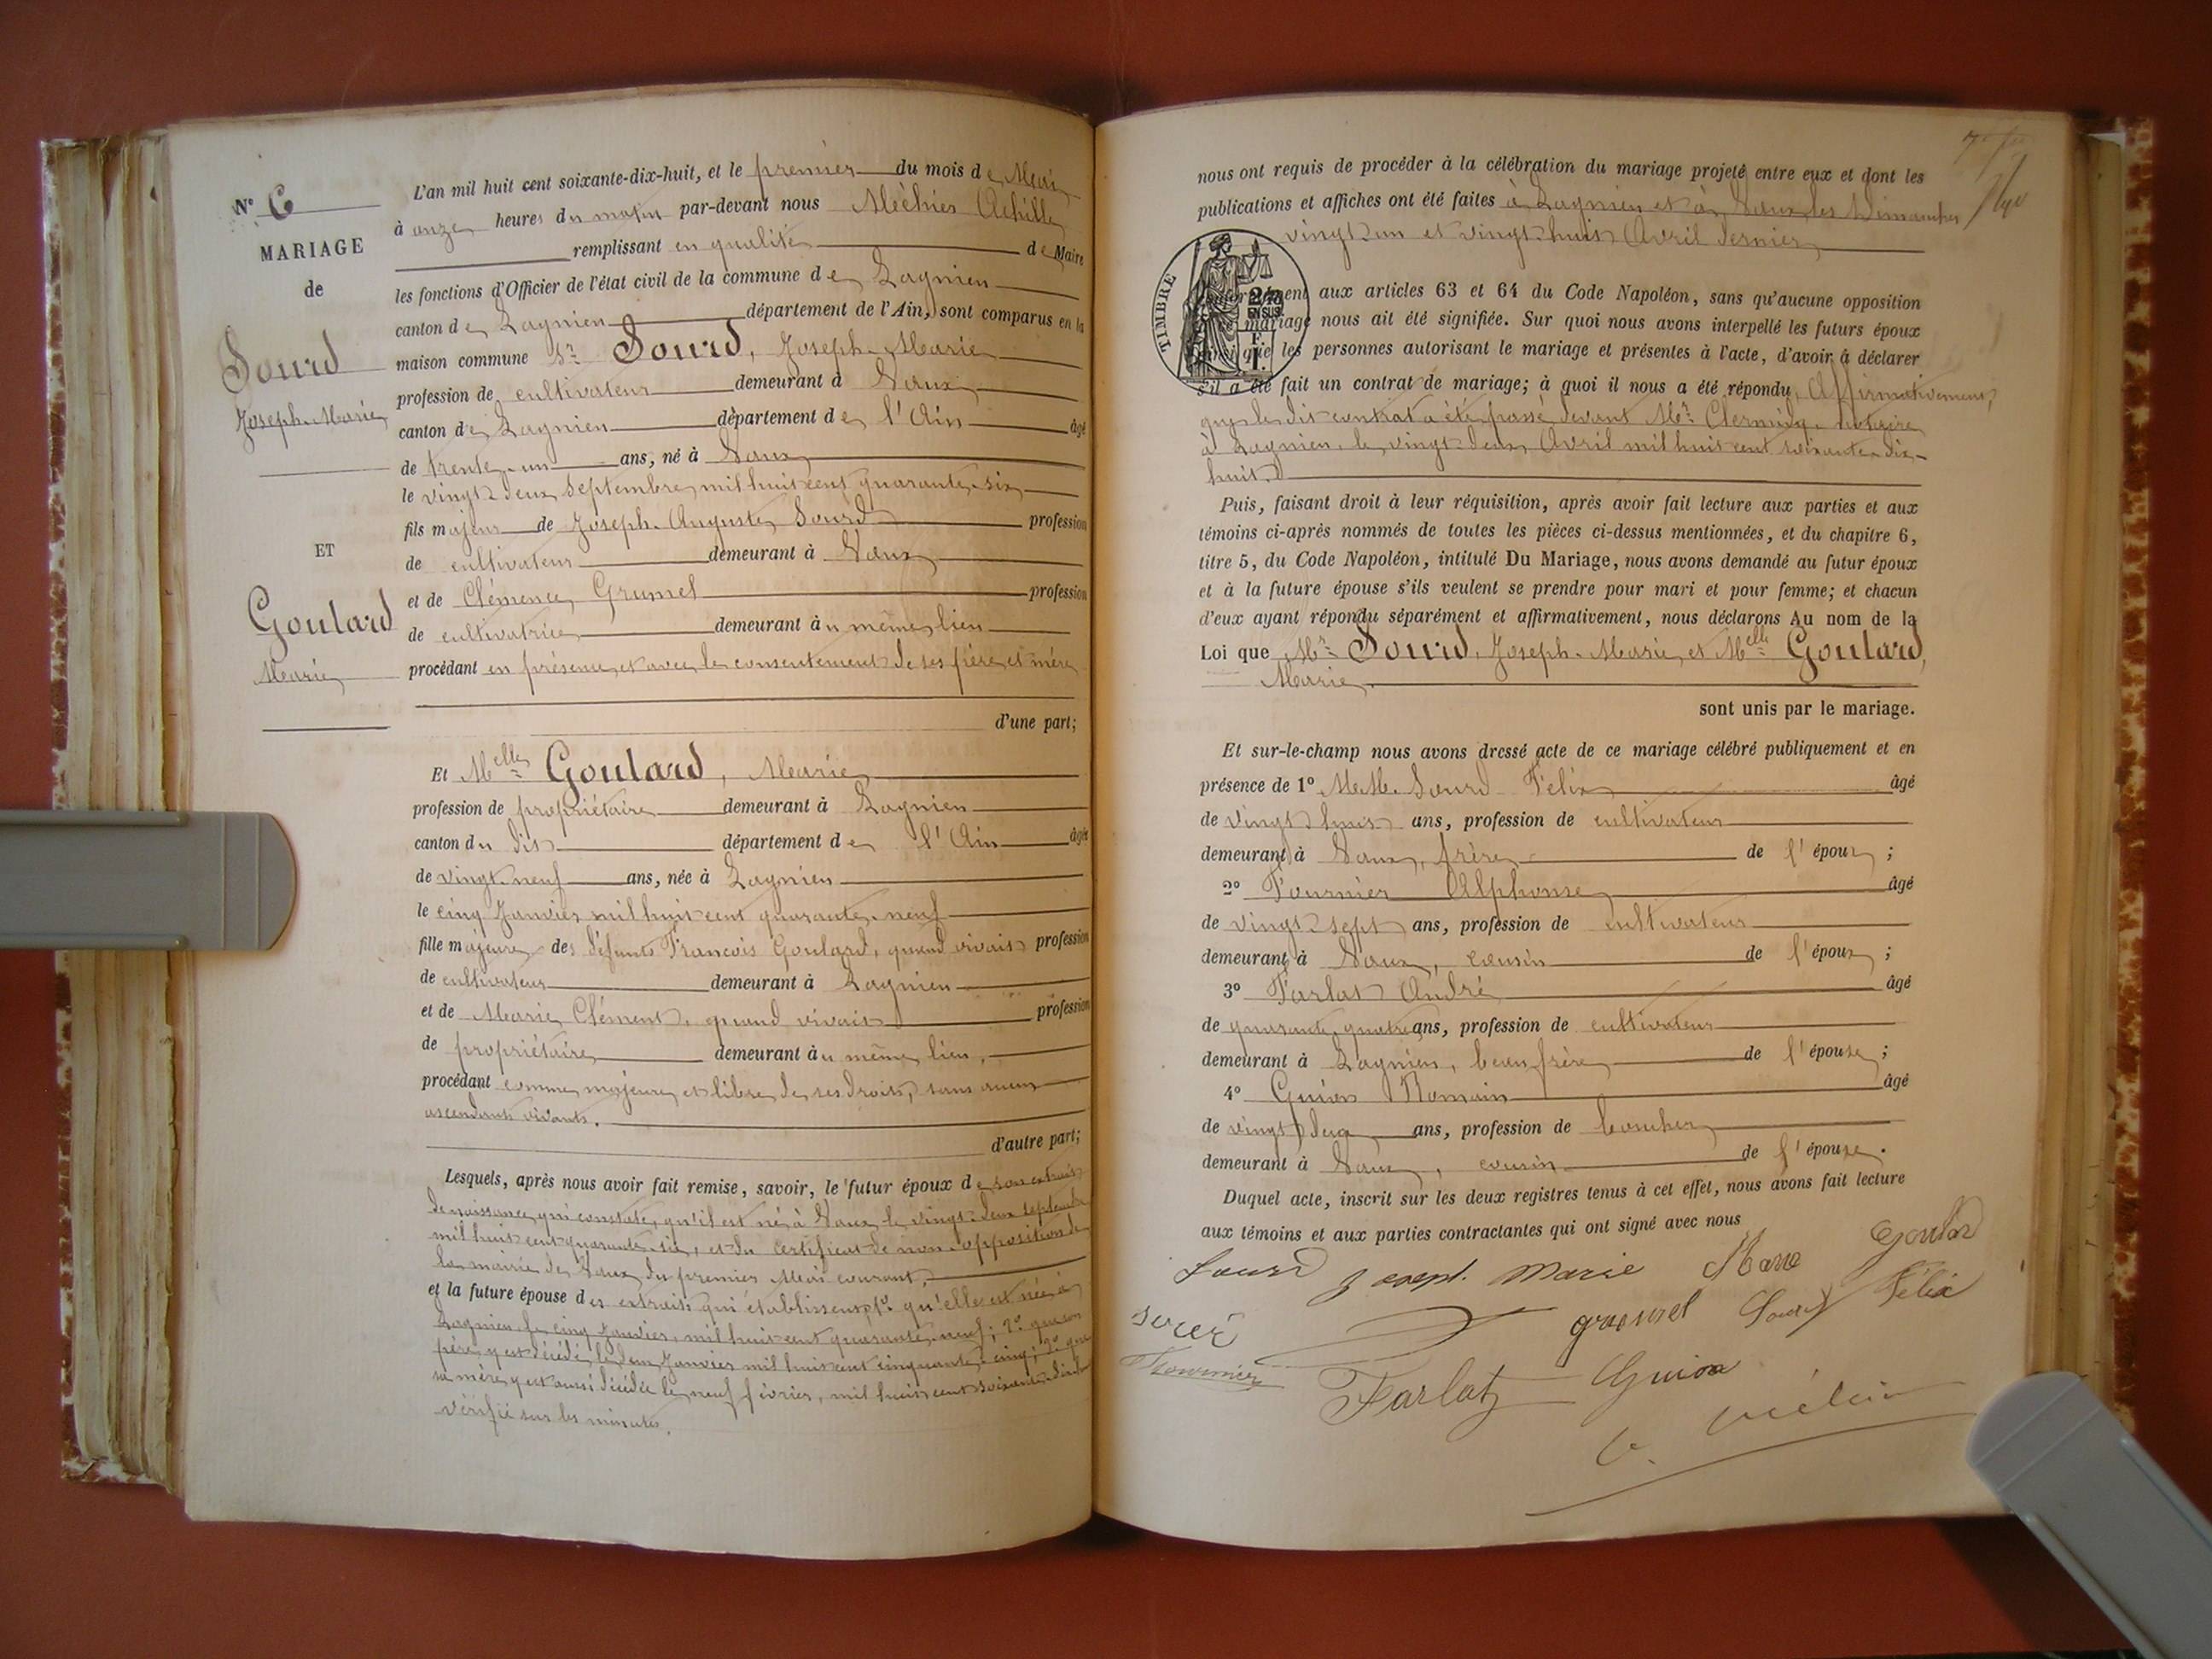 N° 6
MARIAGE
de
Sourd
Joseph-Marie
ET
Goulard
Marie
L'an mil huit cent soixante-dix-huit, et le premier du mois de Mai
à onze heures du matin par-devant nous Méhier Achille
remplissant en qualité de Maire
les fonctions d'Officier de l'état civil de la commune de Lagnieu
canton de Lagnieu département de l'Ain, sont comparus en la
maison commune Sr Sourd, Joseph-Marie
profession de cultivateur demeurant à Vaux
canton de Lagnieu département de l'Ain âgé
de trente-un ans, né à Vaux
le vingt-deux Septembre mil huit cent quarante-six
fils majeur de Joseph-Auguste Sourd profession
de cultivateur demeurant à Vaux
et de Clémence Grumel profession
de cultivatrice demeurant au même lieu
procédant en présence et avec le consentement de ses père et mère
d'une part;
Et Melle Goulard, Marie
profession de propriétaire demeurant à Lagnieu
canton du dit département de l'Ain âgée
de vingt-neuf ans, née à Lagnieu
le cinq Janvier mil huit cent quarante-neuf
fille majeure des défunts François Goulard, quand vivait profession
de cultivateur demeurant à Lagnieu
et de Marie Clément, quand vivait profession
de propriétaire demeurant au même lieu,
procédant comme majeure et libre de ses droits, sans aucun
ascendants vivants.
d'autre part;
Lesquels, après nous avoir fait remise, savoir, le futur époux de son extrait
de naissance qui constate, qu'il est né à Vaux le vingt-deux septembre
mil huit cent quarante-six, et du certificat de non-opposition de
la mairie de Vaux du premier Mai courant,
et la future épouse des extraits qui établissent 1° qu'elle est née à
Lagnieu le cinq Janvier, mil huit cent quarante-neuf; 2° que son
père y est décédé le deux Janvier mil huit cent cinquante-cinq; 3° que
sa mère y est aussi décédée le neuf février, mil huit cent soixante
vérifié sur les minutes.
nous ont requis de procéder à la célébration du mariage projeté entre eux et dont les
publications et affiches ont été faites à Lagnieu et à Vaux les Dimanches
vingt-un et vingt-huit Avril dernier
TIMBRE
2/10 EN SUS
F. 1.
aux articles 63 et 64 du Code Napoléon, sans qu'aucune opposition
mariage nous ait été signifiée. Sur quoi nous avons interpellé les futurs époux
que les personnes autorisant le mariage et présentes à l'acte, d'avoir à déclarer
s'il a été fait un contrat de mariage; à quoi il nous a été répondu Affirmativement,
que le dit contrat a été passé devant Me notaire
à Lagnieu, le vingt-deux Avril mil huit cent soixante-dix-
huit.
Puis, faisant droit à leur réquisition, après avoir fait lecture aux parties et aux
témoins ci-après nommés de toutes les pièces ci-dessus mentionnées, et du chapitre 6,
titre 5, du Code Napoléon, intitulé Du Mariage, nous avons demandé au futur époux
et à la future épouse s'ils veulent se prendre pour mari et pour femme; et chacun
d'eux ayant répondu séparément et affirmativement, nous déclarons Au nom de la
Loi que Mr Sourd, Joseph-Marie et Melle Goulard,
Marie
sont unis par le mariage.
Et sur-le-champ nous avons dressé acte de ce mariage célébré publiquement et en
présence de 1° M.M. Sourd Félix âgé
de vingt-huit ans, profession de cultivateur
demeurant à Vaux, frère de l'époux ;
2° Fournier Alphonse âgé
de vingt-sept ans, profession de cultivateur
demeurant à Vaux, cousin de l'époux ;
3° Farlat André âgé
de quarante-quatre ans, profession de cultivateur
demeurant à Lagnieu, beau-frère de l'épouse ;
4° Guion Romain âgé
de vingt ans, profession de boucher
demeurant à Vaux, cousin de l'épouse.
Duquel acte, inscrit sur les deux registres tenus à cet effet, nous avons fait lecture
aux témoins et aux parties contractantes qui ont signé avec nous
Sourd Joseph Marie Marie Goulard
grumel Sourd Félix
Fournier
Farlat Guion